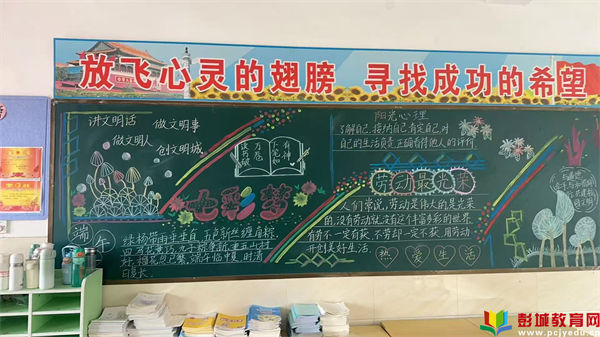 放飞心灵的翅膀 寻找成功的希望
讲文明话
做文明事
做文明人
创文明城
读书破
万卷
下笔如
有神
阳光心理
了解自己,接纳自己,肯定自己,对
自己的生活负责,正确看待他人的评价
中国梦
劳动最光荣
人们常说,劳动是伟大的,是光荣
的,没有劳动就没有这个富多彩的世界
有劳不一定有获,不劳却一定不获,用劳动
开创美好生活。
热爱生活
端午
绿杨带雨垂垂重。五色新丝缠角粽
彭城教育网
www.pcjyedu.cn